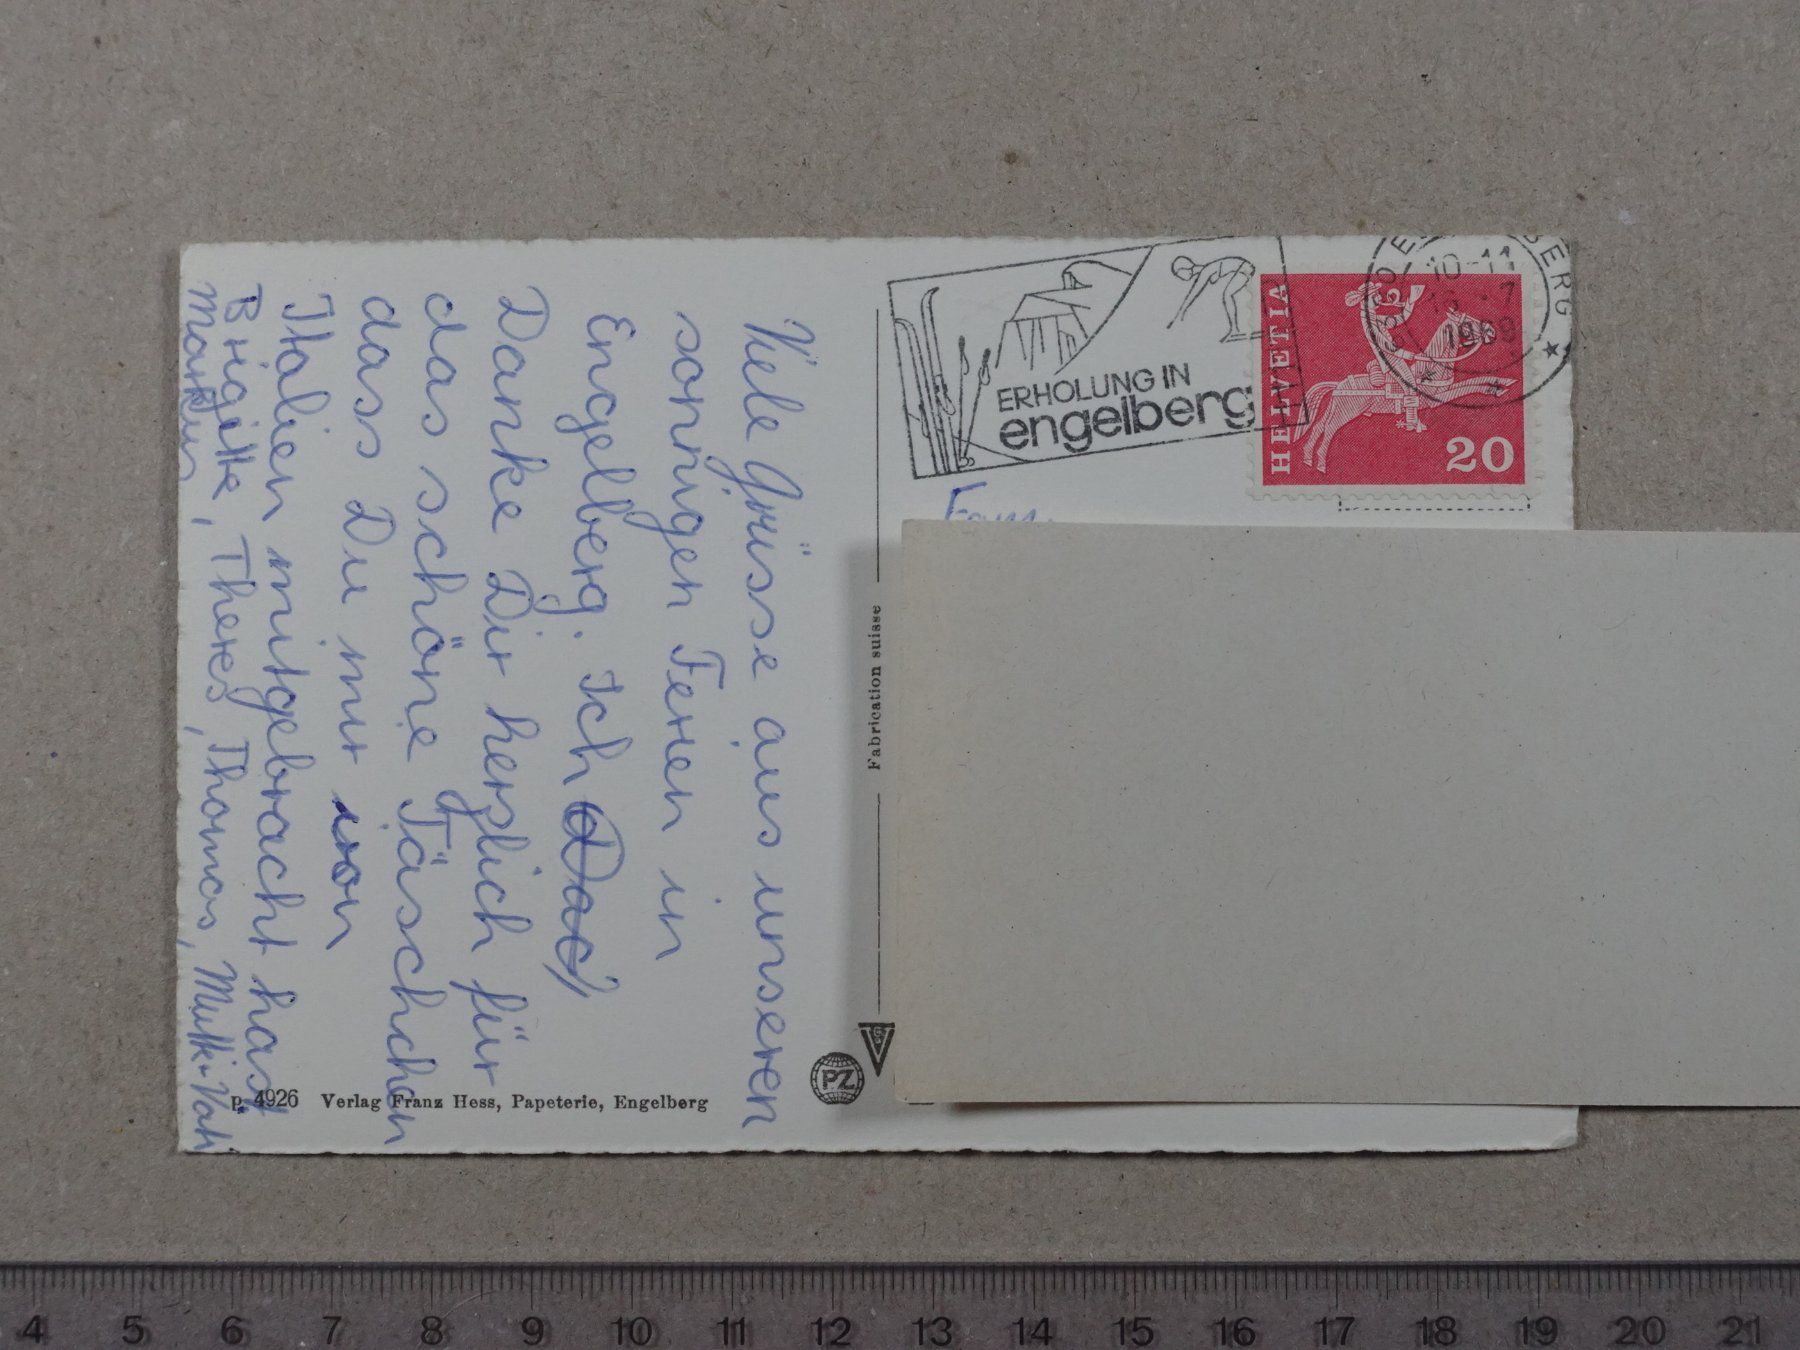 Viele Grüsse aus unseren
sonnigen Ferien in
Engelberg. Ich
Danke Dir herzlich für
das schöne Täschchen
dass Du mir von
Italien mitgebracht hast
Brigitte, Theres, Thomas, Mutti + Vati
Markus
p. 4926 Verlag Franz Hess, Papeterie, Engelberg
Fabrication suisse
PZ
ERHOLUNG IN
engelberg
10-11
7
1969
HELVETIA
20
Fam.
4 5 6 7 8 9 10 11 12 13 14 15 16 17 18 19 20 21